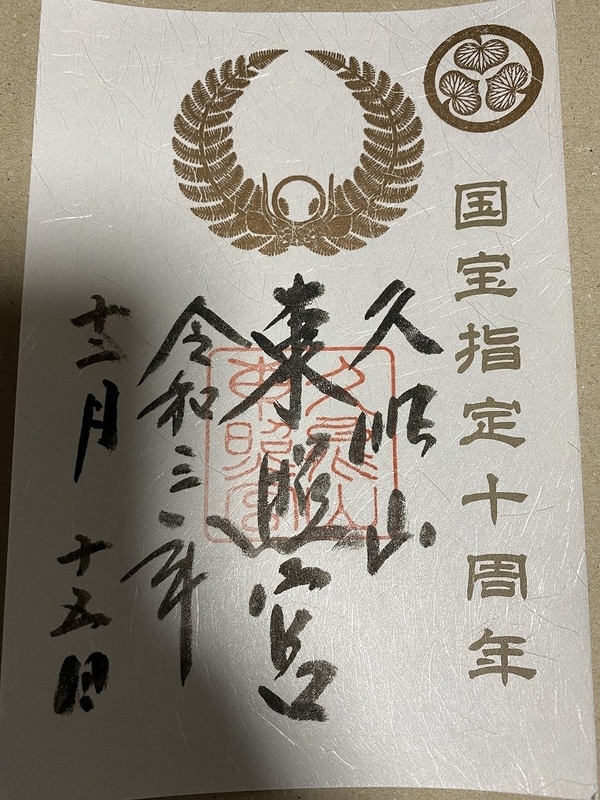 国宝指定十周年
久能山
東照宮
令和三年
十二月 十五日
久能山
東照宮